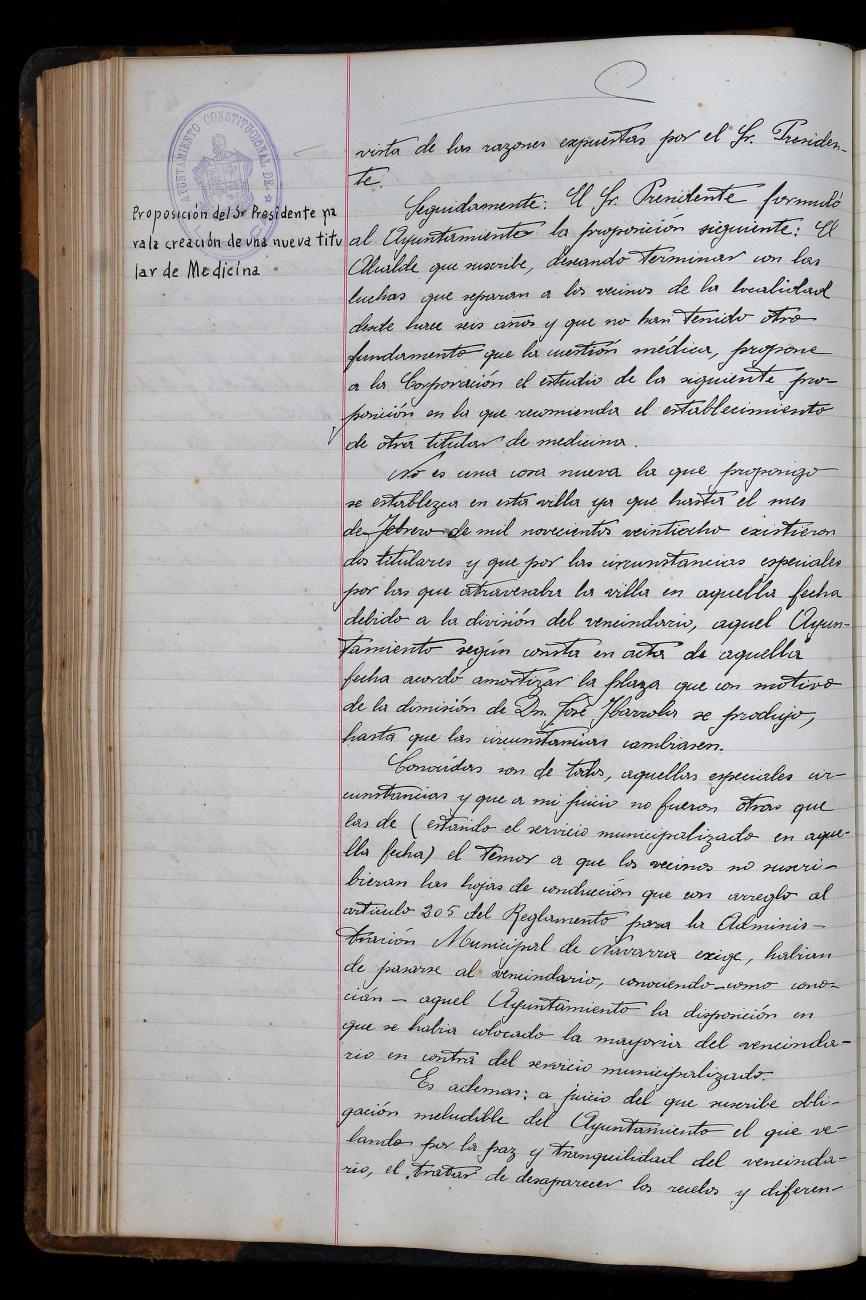 AYUNTAMIENTO CONSTITUCIONAL DE
Proposición del Sr Presidente pa
ra la creación de una nueva titu
lar de Medicina
vista de las razones expuestas por el Sr. Presiden-
te.
Seguidamente: El Sr. Presidente formuló
al Ayuntamiento la proposición siguiente: El
Alcalde que suscribe, deseando terminar con las
luchas que separan a los vecinos de la localidad
desde hace seis años y que no han tenido otro
fundamento que la cuestión médica, propone
a la Corporación el estudio de la siguiente pro-
posición en la que recomienda el establecimiento
de otra titular de medicina.
No es una cosa nueva la que propongo
se establezca en esta villa ya que hasta el mes
de Febrero de mil novecientos veintiocho existieron
dos titulares y que por las circunstancias especiales
por las que atravesaba la villa en aquella fecha
debido a la división del vencindario, aquel Ayun-
tamiento según consta en acta de aquella
fecha acordó amortizar la plaza que con motivo
de la dimisión de Dn. José Ibarrola se produjo,
hasta que las circunstancias cambiasen.
Conocidas son de todos, aquellas especiales cir-
cunstancias y que a mi juicio no fueron otras que
las de (estando el servicio municipalizado en aque-
lla fecha) el temor a que los vecinos no suscri-
bieran las hojas de conducción que con arreglo al
artículo 205 del Reglamento para la Adminis-
tración Municipal de Navarra exige, habian
de pasarse al vencindario, conociendo-como cono-
cián - aquel Ayuntamiento la disposición en
que se habia colocado la mayoria del vencinda-
rio en contra del servicio municipalizado.
Es ademas: a juicio del que suscribe obli-
gación ineludible del Ayuntamiento el que ve-
lando por la paz y tranquilidad del vencinda-
rio, el tratar de desaparecer los recelos y diferen-